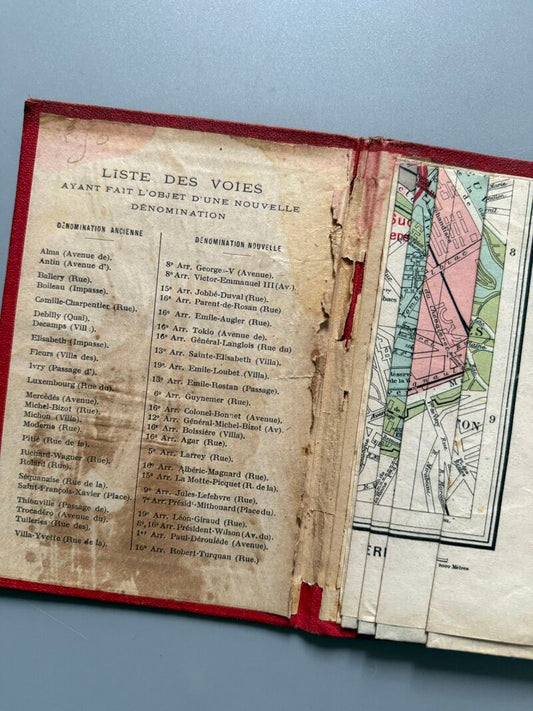 LISTE DES VOIES
AYANT FAIT L'OBJET D'UNE NOUVELLE
DÉNOMINATION
DÉNOMINATION ANCIENNE
Alma (Avenue de).
Antin (Avenue d').
Ballery (Rue).
Boileau (Impasse).
Camille-Charpentier (Rue).
Debilly (Quai).
Decamps (Vill ).
Elisabeth (Impasse).
Fleurs (Villa des).
Ivry (Passage d').
Luxembourg (Rue du)
Mercédès (Avenue).
Michel-Bizot (Rue).
Michon (Villa).
Moderne (Rue).
Pitié (Rue de la).
Richard-Wagner (Rue).
Rolard (Rue).
Séquanaise (Rue de la)
Saint-François-Xavier (Place).
Thionville (Passage de).
Trocadéro (Avenue du).
Tuileries (Rue des).
Villa-Yvette (Rue de la).
DÉNOMINATION NOUVELLE
8e Arr. George-V (Avenue).
8e Arr. Victor-Emmanuel III (Av.)
15e Arr. Jobbé-Duval (Rue).
16e Arr. Parent-de-Rosan (Rue)
16e Arr. Emile-Augier (Rue).
16e Arr. Tokio (Avenue de).
16e Arr. Général-Langlois (Rue du)
13e Arr. Sainte-Elisabeth (Villa).
19e Arr. Emile-Loubet (Villa).
13e Arr. Emile-Rostan (Passage).
6e Arr. Guynemer (Rue).
16e Arr. Colonel-Bonnet (Avenue).
12e Arr. Général-Michel-Bizot (Av).
16e Arr. Boissière (Villa).
16e Arr. Agar (Rue).
5e Arr. Larrey (Rue).
16e Arr. Albéric-Magnard (Rue).
15e Arr. La Motte-Picquet (R. de la).
Arr. Jules-Lefebvre (Rue).
7e Arr. Présidt-Mithouard (Place du).
19e Arr. Léon-Giraud (Rue).
8e, 16e Arr. Président-Wilson (Av. du).
1er Arr. Paul-Déroulède (Avenue).
16e Arr. Robert-Turquan (Rue.)
8
9
S
M
2000 Mètres